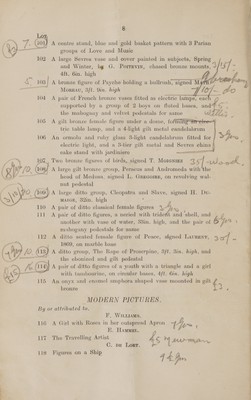 8.
Lot
101 A centre stand, blue and gold basket pattern with 3 Parian
groups of Love and Music
102 A large Sevres vase and cover painted in subjects, Spring
and Winter, by G. Poitevin, chased bronze mounts,
4ft. 6in. high
103 A bronze figure of Psyche holding a bullrush, signed Math.
Moreau, 3ft. 9in. high
104 A pair of French bronze vases fitted as electric lamps, each
supported by a group of 2 boys on fluted bases, and
the mahogany and velvet pedestals for same
105 A gilt bronze female figure under a dome, forming an electric
tric table lamp, and a 4-light gilt metal candelabrum
106 An ormolu and ruby glass 9-light candelabrum fitted for
electric light, and a 3-tier gilt metal and Sevres china
cake stand with patinains
107 Two bronze figures of birds, signed T. Moriguez
108 A large gilt bronze group, Perseus and Andromeda with the
head of Medusa, signed L. Gregoire, on revolving walnut
nut pedestal
109 A large ditto group, Cleopatra and Slave, signed H. Dumaige,
maige, 32in. high
110 A pair of ditto classical female figures
111 A pair of ditto figures, a nereid with trident and shell, and
another with vase of water, 35in. high, and the pair of
mahogany pedestals for same
112 A ditto seated female figure of Peace, signed Laurent,
1909, on marble base
113 A ditto group, The Rape of Proserpine, 3ft. 3in. high, and
the ebonised and gilt pedestal
114 A pair of ditto figures of a youth with a triangle and a girl
with tambourine, on circular bases, 4ft. 6in. high
115 An onyx and enamel amphora shaped vase mounted in gilt
bronze
MODERN PICTURES.
By or attributed to.
F. Williams.
116 A Girl with Roses in her outspread Apron
E. Hambel.
117 The Travelling Artist
C. de Lort.
118 Figures on a Ship